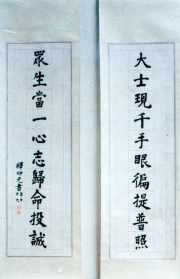 大士現千手眼徧提普照
眾生當一心志歸命投誠